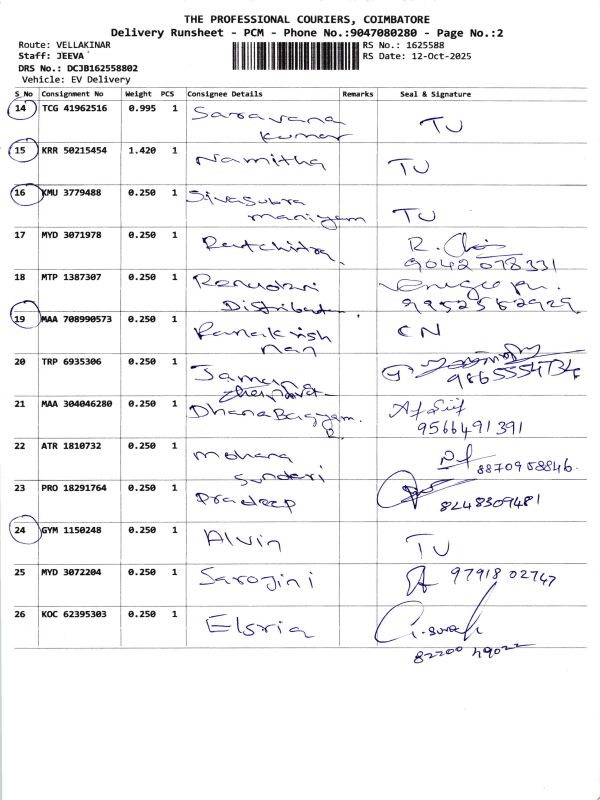 THE PROFESSIONAL COURIERS, COIMBATORE
Delivery Runsheet - PCM - Phone No.:9047080280 - Page No.:2
Route: VELLAKINAR RS No.: 1625588
Staff: JEEVA RS Date: 12-Oct-2025
DRS No.: DCJB162558802
Vehicle: EV Delivery
S_No Consignment No Weight PCS Consignee Details Remarks Seal & Signature
14 TCG 41962516 0.995 1 Saravana TU
Kumar
15 KRR 50215454 1.420 1 Namitha TU
16 KMU 3779488 0.250 1 Sivasubra
maniyam TU
17 MYD 3071978 0.250 1
9042078331
18 MTP 1387307 0.250 1
9952562929
19 MAA 708990573 0.250 1 Ramakrish CN
nan
20 TRP 6935306 0.250 1 Jamuna
21 MAA 304046280 0.250 1 DhanaBagyam.
R. 9566491391
22 ATR 1810732 0.250 1 mohana
Sundari 8870958846.
23 PRO 18291764 0.250 1 Pradeep 8248309481
24 GYM 1150248 0.250 1 Alvin TU
25 MYD 3072204 0.250 1 Sarojini 97918 02747
26 KOC 62395303 0.250 1
82200 49022